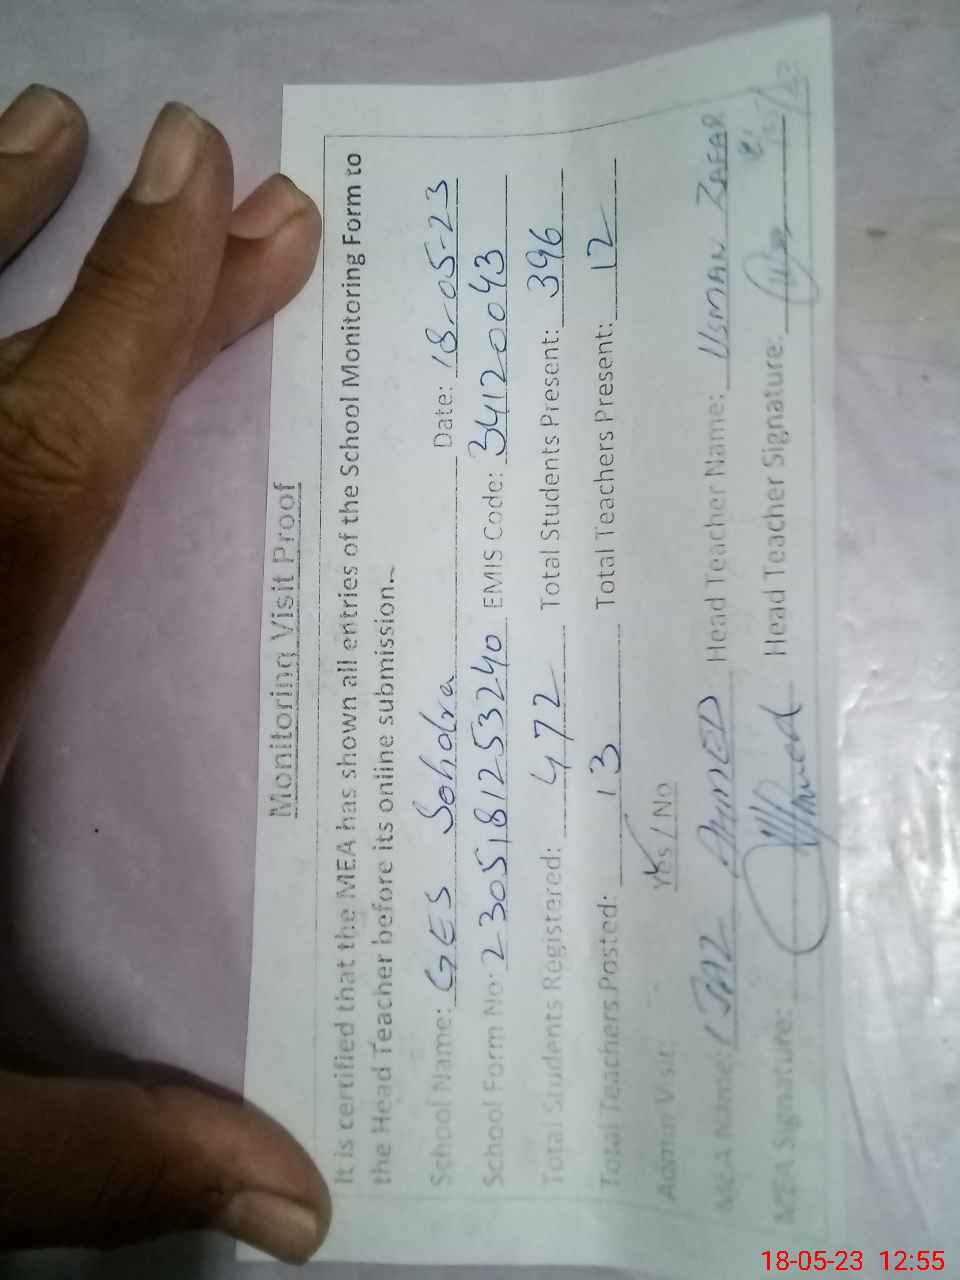 Monitoring Visit Proof
It is certified that the MEA has shown all entries of the School Monitoring Form to
the Head Teacher before its online submission.
School Name: GES Sohdra Date: 18-05-23
School Form No: 2305181253240 EMIS Code: 34120043
Total Students Registered: 472 Total Students Present: 396
Total Teachers Posted: 13 Total Teachers Present: 12
Admin Visit: Yes / No
MEA Name: IJAZ AHMED Head Teacher Name: USMAN ZAFAR
MEA Signature: Head Teacher Signature:
18-05-23 12:55